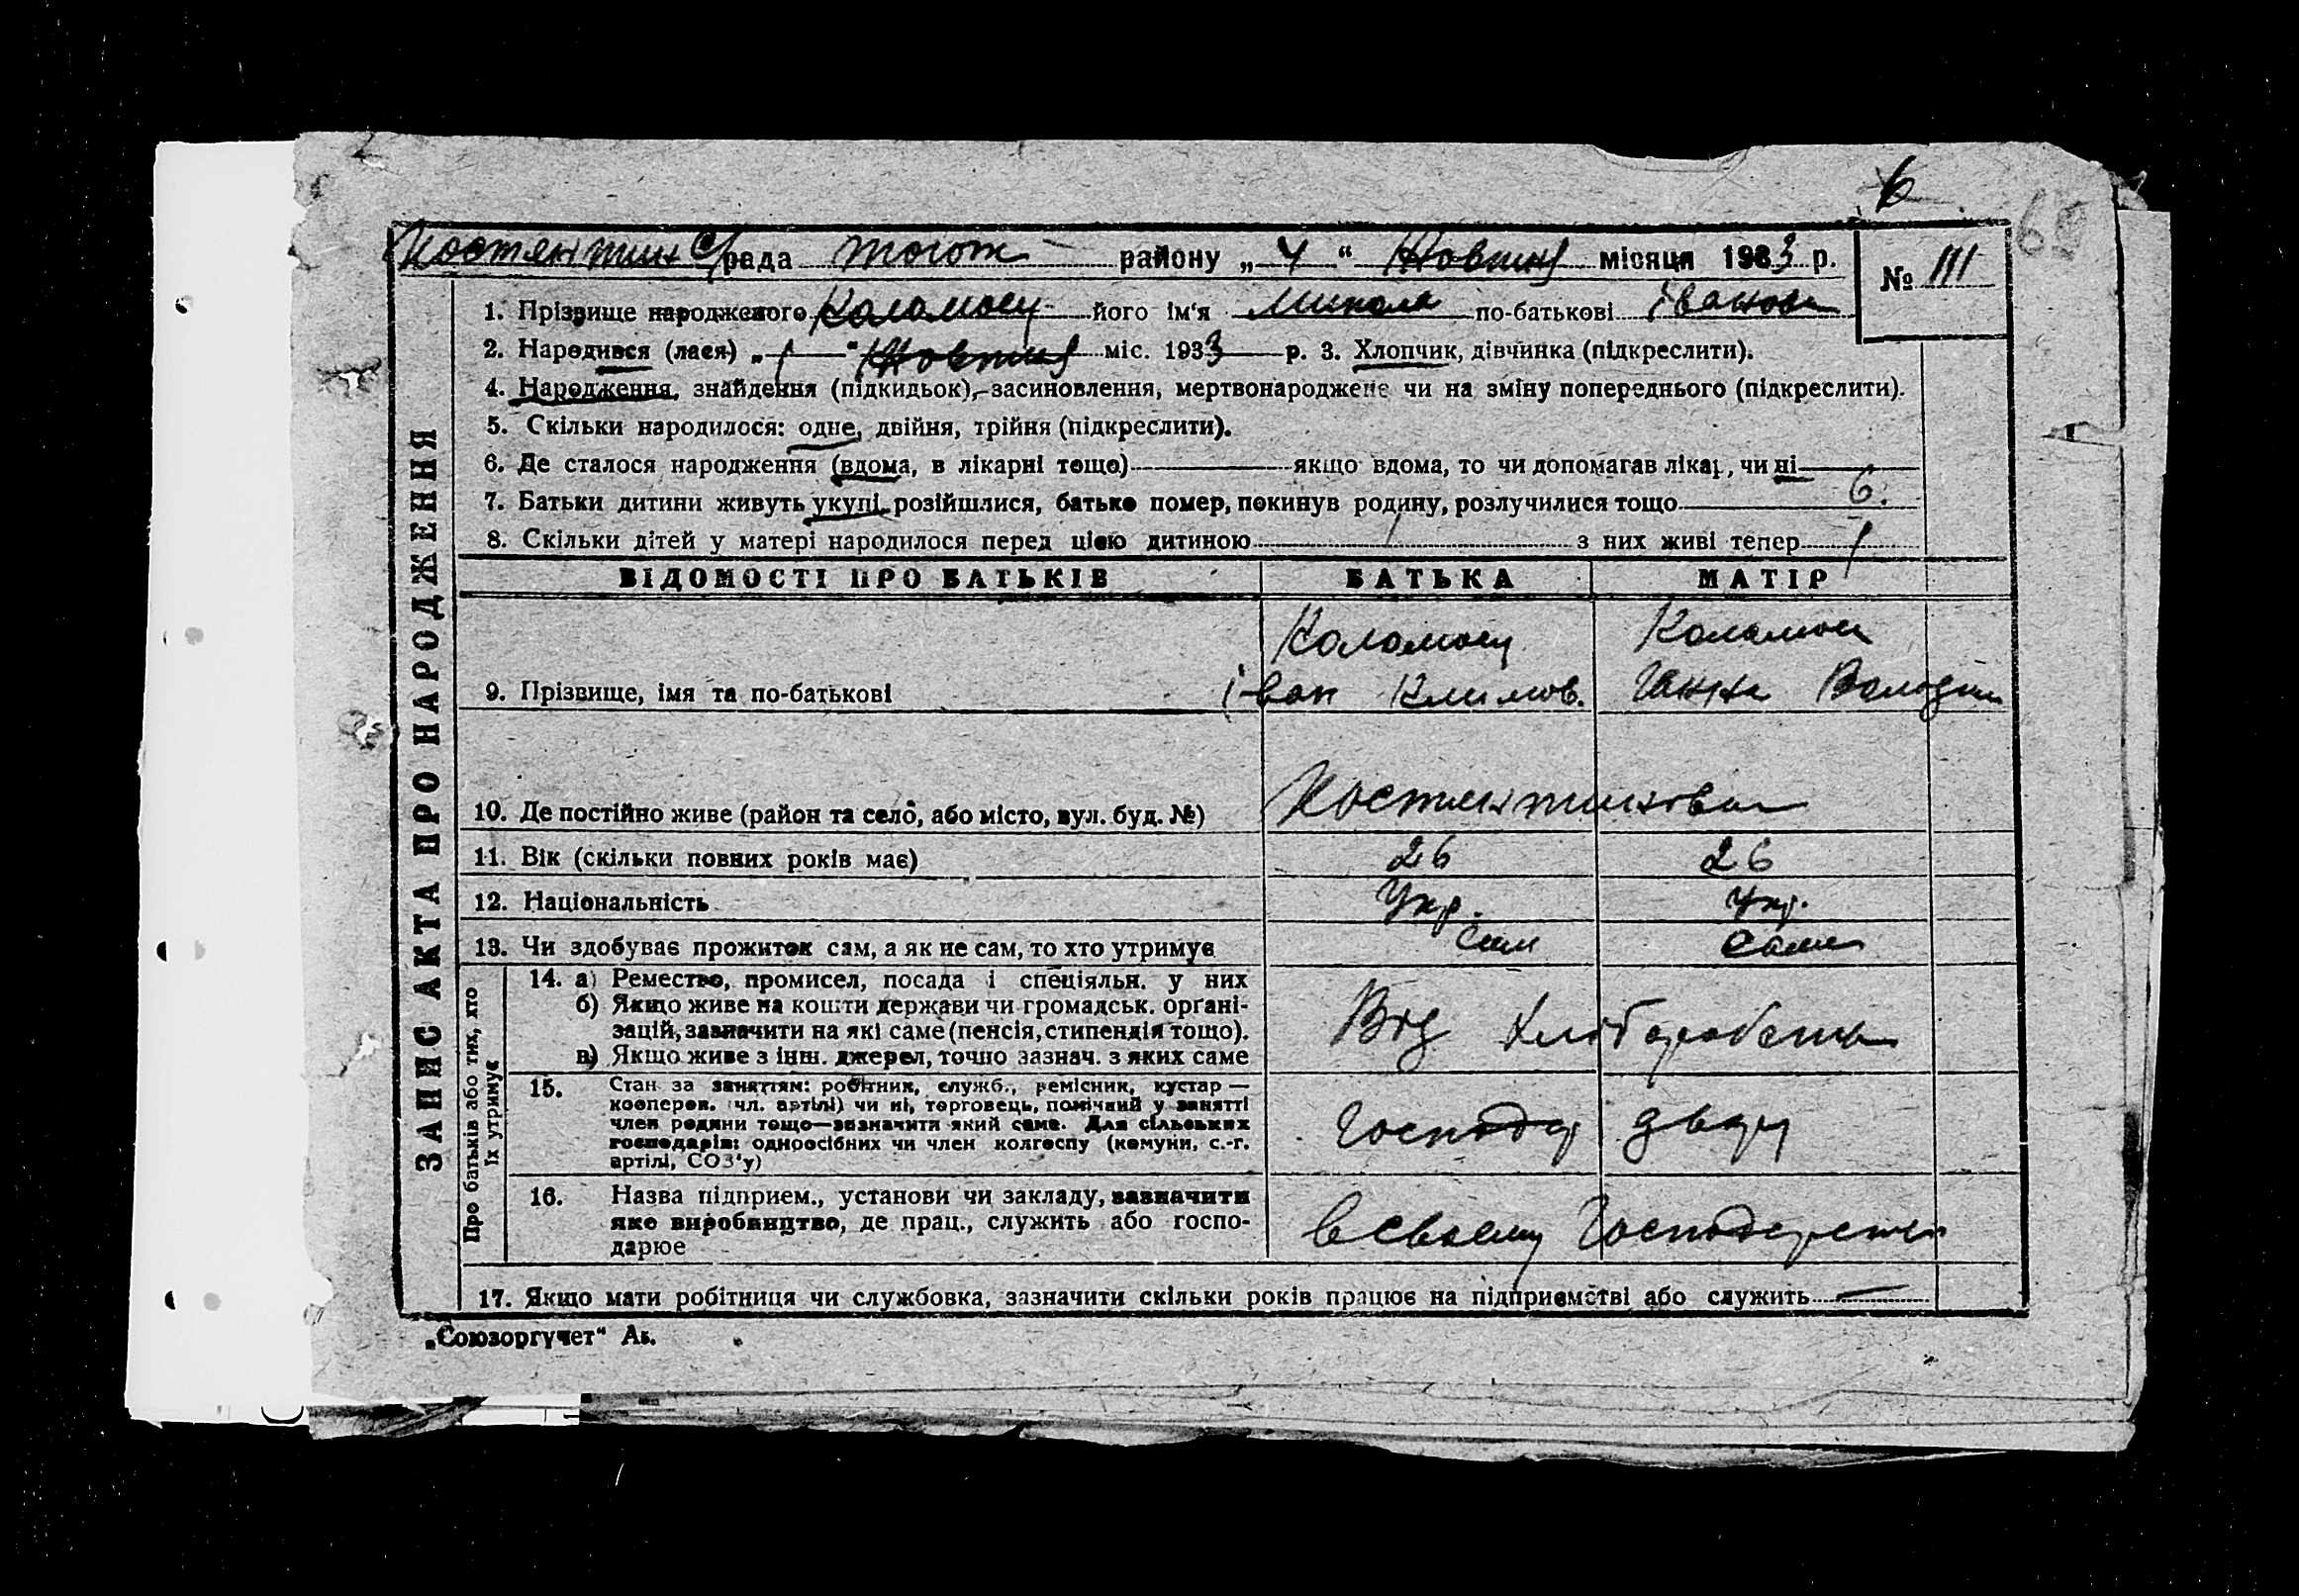 6
65
Костянтин с/рада того ж району „ 4 “ Жовтня місяця 1933 р.
№ 111
1. Прізвище народженого Каламоец його ім'я Микола по-батькові Іванов
2. Народився (лася) „ 1 “ Жовтня міс. 1933 р. 3. Хлопчик, дівчинка (підкреслити).
4. Народження, знайдення (підкидьок), засиновлення, мертвонароджене чи на зміну попереднього (підкреслити).
5. Скільки народилося: одне, двійня, трійня (підкреслити).
6. Де сталося народження (вдома, в лікарні тощо) якщо вдома, то чи допомагав лікар, чи ні
7. Батьки дитини живуть укупі, розійшлися, батько помер, покинув родину, розлучилися тощо 6.
8. Скільки дітей у матері народилося перед цією дитиною 1 з них живі тепер 1
ЗАПИС АКТА ПРО НАРОДЖЕННЯ
ВІДОМОСТІ ПРО БАТЬКІВ БАТЬКА МАТІР
9. Прізвище, імя та по-батькові Іван Климов. Ганна Володим
10. Де постійно живе (район та село, або місто, вул. буд. №) Костянтиновка
11. Вік (скільки повних років має) 26 26
12. Національність Укр. Укр.
13. Чи здобуває прожиток сам, а як не сам, то хто утримує сам сама
Про батьків або тих, хто
їх утримує
14. а) Ремество, промисел, посада і спеціяльн. у них
б) Якщо живе на кошти держави чи громадськ. органі-
зацій, зазначити на які саме (пенсія, стипендія тощо).
в) Якщо живе з інш. джерел, точно зазнач. з яких саме
Від хліборобства
15. Стан за заняттям: робітник, служб., ремісник, кустар —
коопером. (чл. артілі) чи ні, торговець, помічний у занятті
член родини тощо—зазначити який саме. Для сільських
господарів: одноосібних чи член колгоспу (комуни, с.-г.
артілі, СОЗ'у)
Господар двору
16. Назва підприєм., установи чи закладу, зазначити
яке виробництво, де прац., служить або госпо-
дарює
в своєму Господарстві
17. Якщо мати робітниця чи службовка, зазначити скільки років працює на підприємстві або служить —
„Союзоргучет“